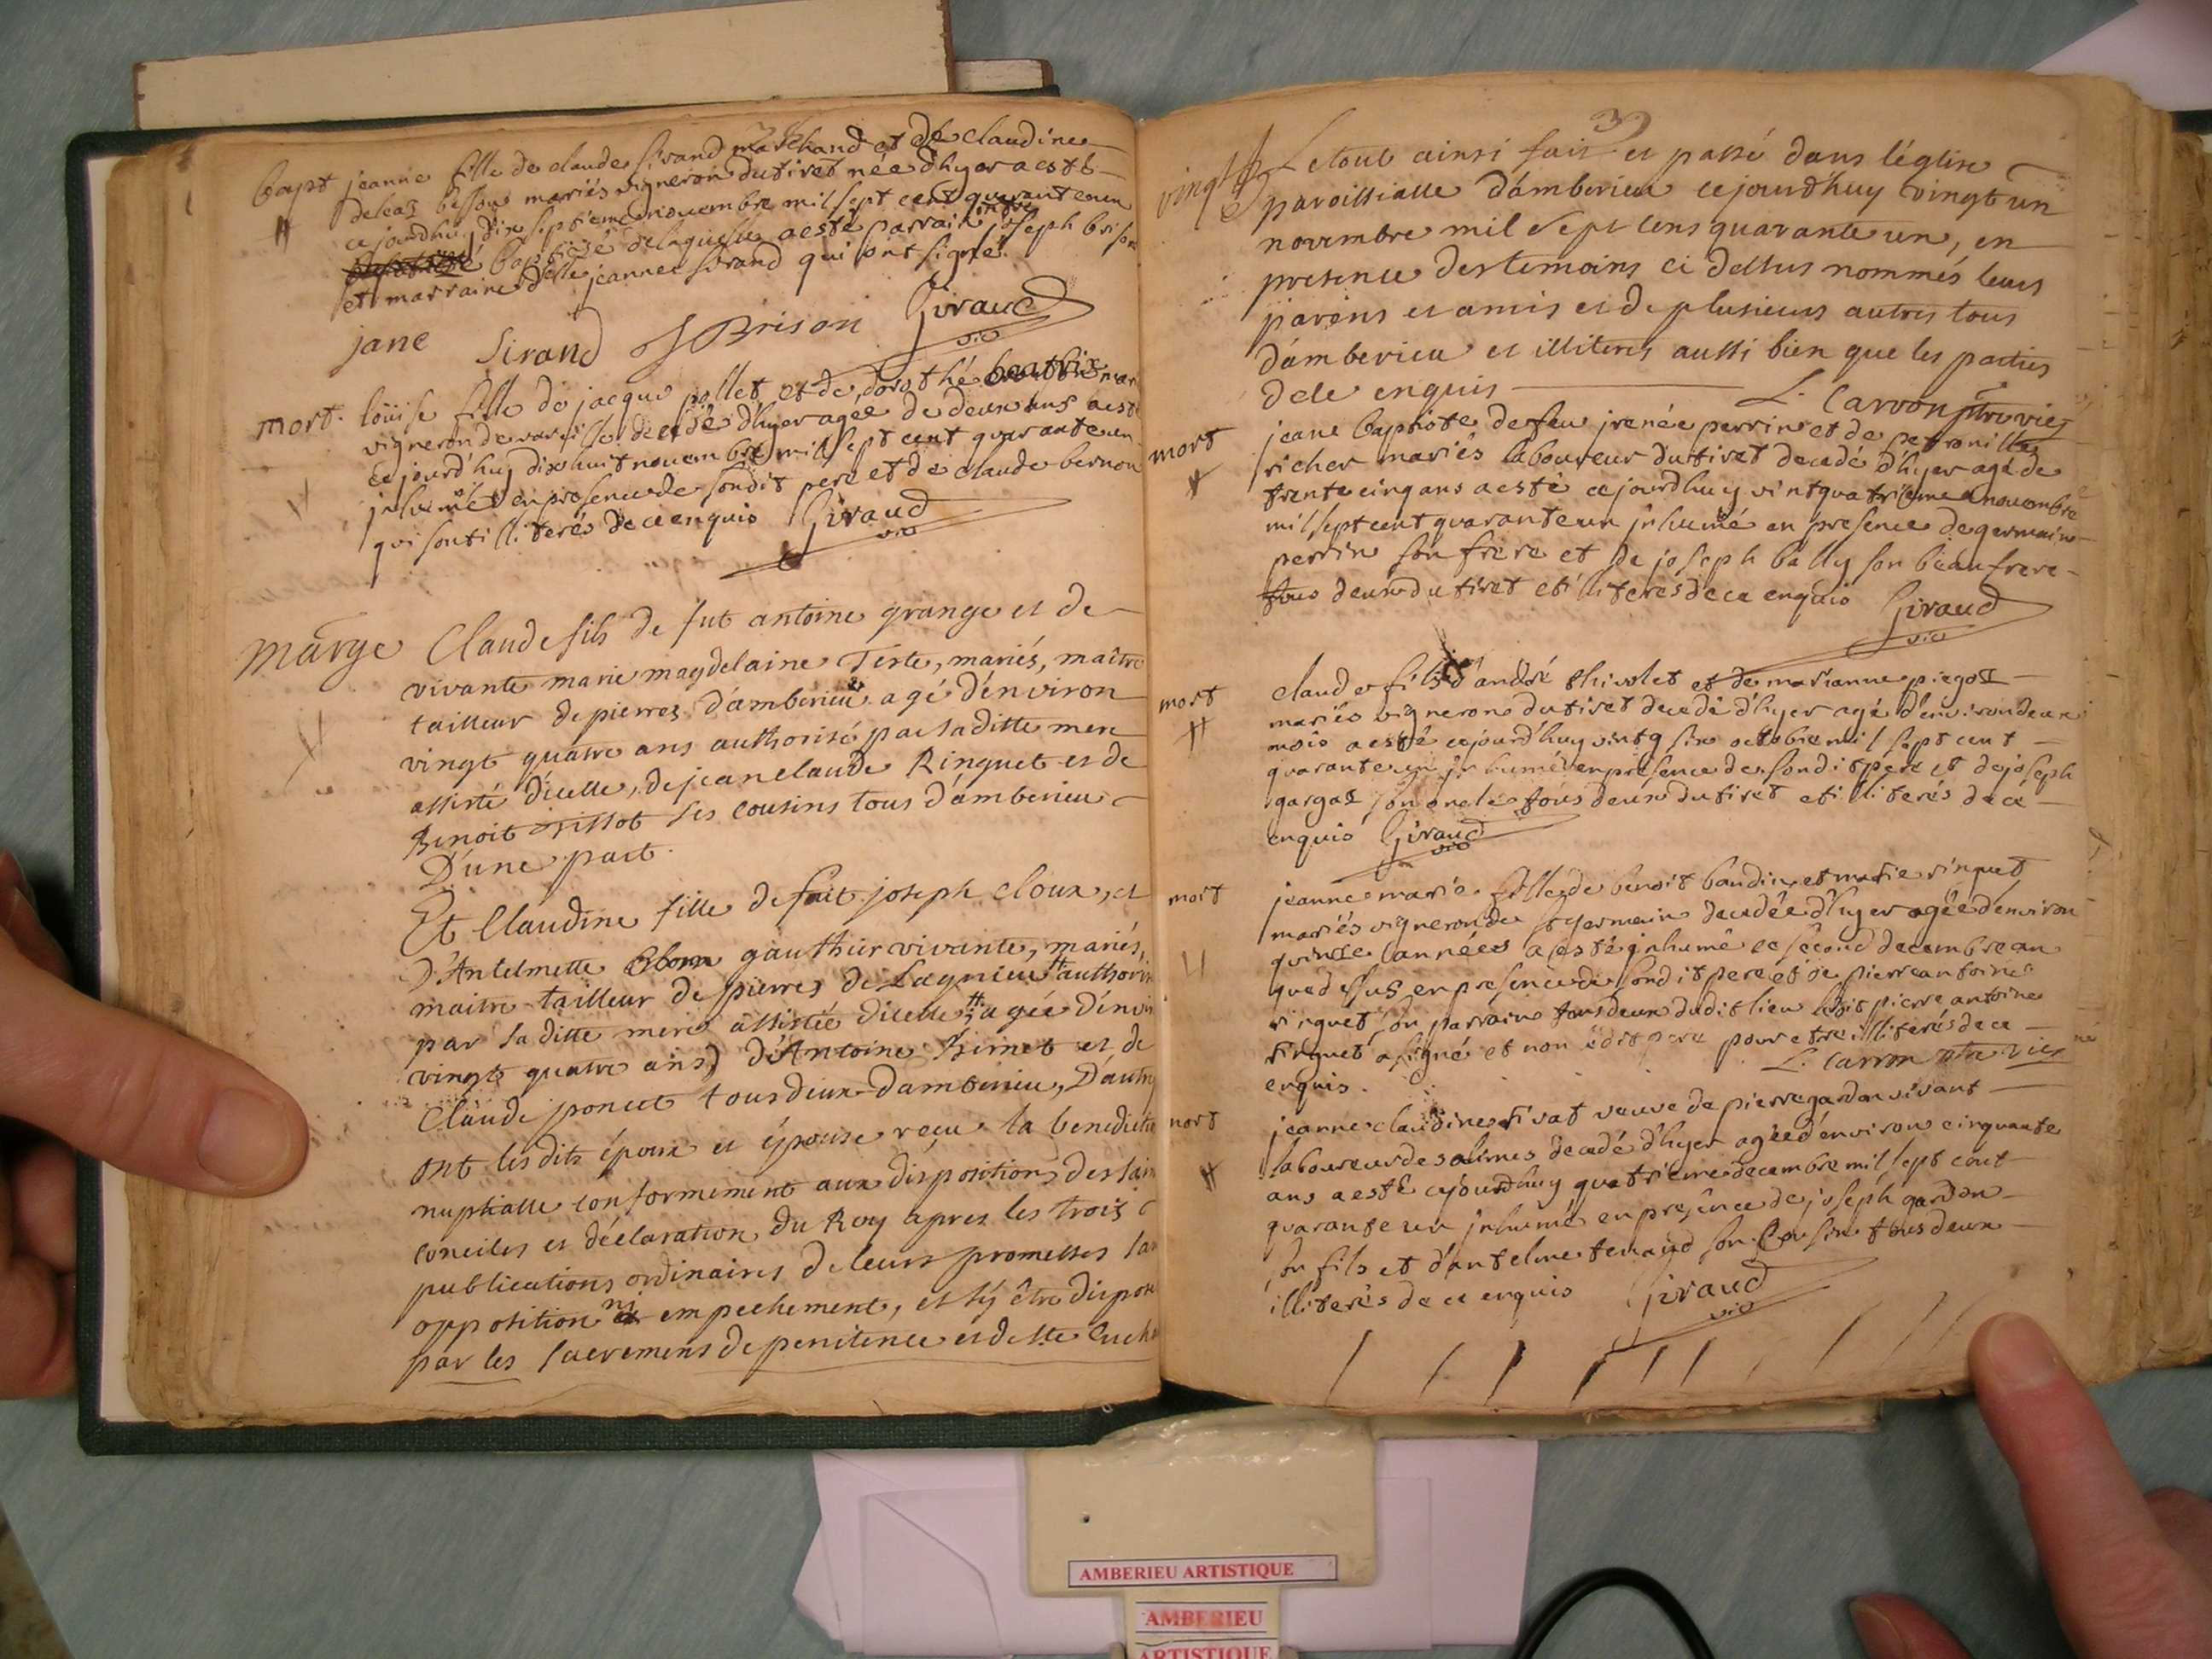 38
bapt jeanne fille de claude sirand marchand et de claudine
deleaz besson mariés vigneron dutiret née d'hyer a esté
ce jourdhuy dix septieme novembre mil sept cent quarante un
baptisé de laquelle a esté parrain joseph brison
et marraine delle jeanne sirand qui ont signé.
jane Sirand J Brison Giraud
vic
mort. loüise fille de jacque pollet et de dorothé beatrix mar
vigneron de vareille decedé d'hyer agée de deux ans a est
ce jourd'huy dixhuit novembre mil sept cent quarante un
inhumé en presence de sondit pere et de claude bernon
qui sont illiterés de ce enquis Giraud
vic
marge Claude fils de fut antoine grange et de
vivante marie magdelaine Tiste, mariés, maître
tailleur de pierres d'amberieu agé d'environ
vingt quatre ans authorisé par sa ditte mere
assisté d'icelle, de jean claude Ringuet et de
Benoit Tissot ses cousins tous d'amberieu
D'une part.
Et Claudine fille de fut joseph cloux, et
D'Antelmette gauthier vivante, mariés,
maitre tailleur de pierres de Lagnieu # authoris
par sa ditte mere assistée d'icelle # agée d'envir
vingt quatre ans) d'Antoine et de
Claude poncet tous deux d'amberieu, D'autre
ont les dits époux et épouse reçu la benedictio
nuptialle conformement aux dispositions des sain
conciles et déclaration du Roy apres les trois
publications ordinaires de leurs promesses san
opposition ni empechement, et s'y être dispos
par les sacremens de penitence et de Ste Eucha
39
vingt # Le tout ainsi fait et passé dans l'église
paroissialle d'amberieu ce jourd'huy vingt un
novembre mil sept cens quarante un, en
presence des temoins ci dessus nommés leurs
parens et amis et de plusieurs autres tous
d'amberieu et illiterés aussi bien que les parties
de ce enquis L. Carron ptre vic
mort jeane baptiste de feu jrenée perrin et de petronille
richer mariés laboureur dutiret decedé d'hyer agé de
trente cinq ans a esté ce jourdhuy vintquatrieme novembre
mil sept cent quarante un inhumé en presence de germain
perrin son frere et de joseph bally son beaufrere
tous deux dutiret et illiterés de ce enquis Giraud
vic
mort claude fils d'andré thivolet et de marianne piegoz
mariés vigneron dutiret decedé d'hyer agé d'environ deux
mois a esté ce jourd'huy vintg six octobre mil sept cent
quarante un inhumé en presence de son dit pere et de joseph
gargaz son oncle tous deux dutiret et illiterés de ce
enquis Giraud
vic
mort jeanne marie fille de benoit baudin et marie rinquet
mariés vigneron de st germain decedée d'hyer agée d'environ
quinze années a esté inhumé ce second decembre an
que dessus en presence de sondit pere et de pierre antoine
rinquet son parrain tous deux dudit lieu ledit pierre antoine
rinquet a signé et non ledit pere pour etre illiterés de ce
enquis. L. Carron ptre vic
mort jeanne claudine rivat veuve de pierre gardon vivant
laboureur des alimes decedé d'hyer agée d'environ cinquante
ans a esté ce jourdhuy quatrieme decembre mil sept cent
quarante un inhumé en presence de joseph gardon
son fils et d'antelme tenand son cousin tous deux
illiterés de ce enquis Giraud
vic
AMBERIEU ARTISTIQUE
AMBERIEU
ARTISTIQUE